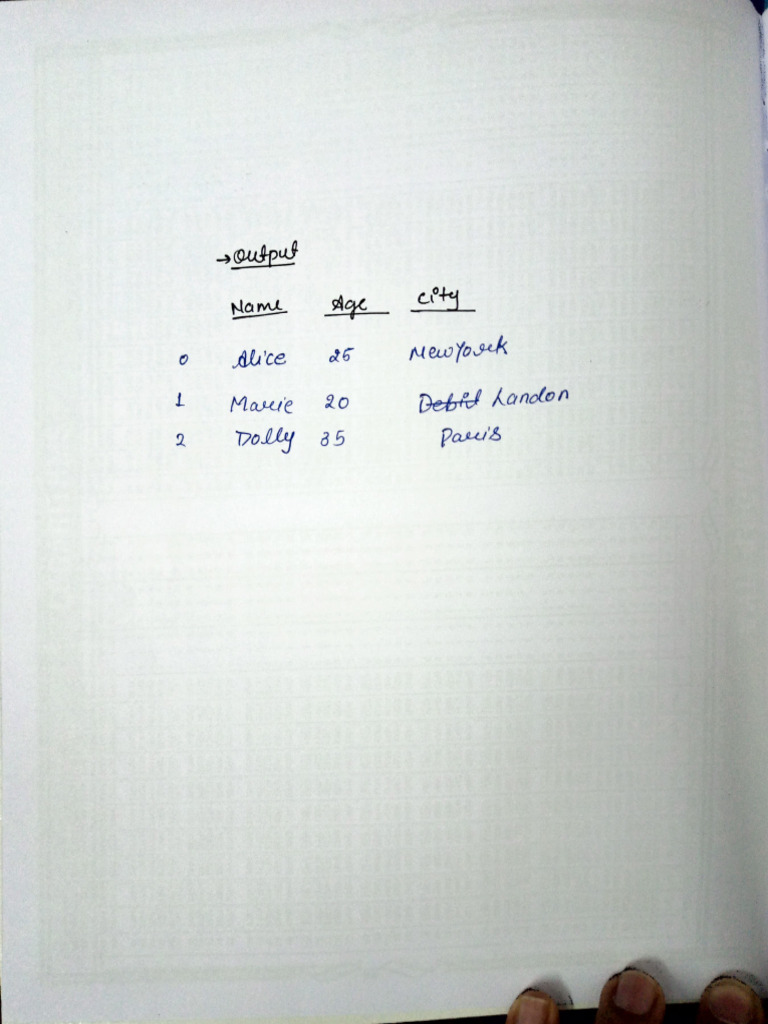 → Output
Name Age City
0 Alice 25 New York
1 Marie 20 Landon
2 Dolly 35 Paris